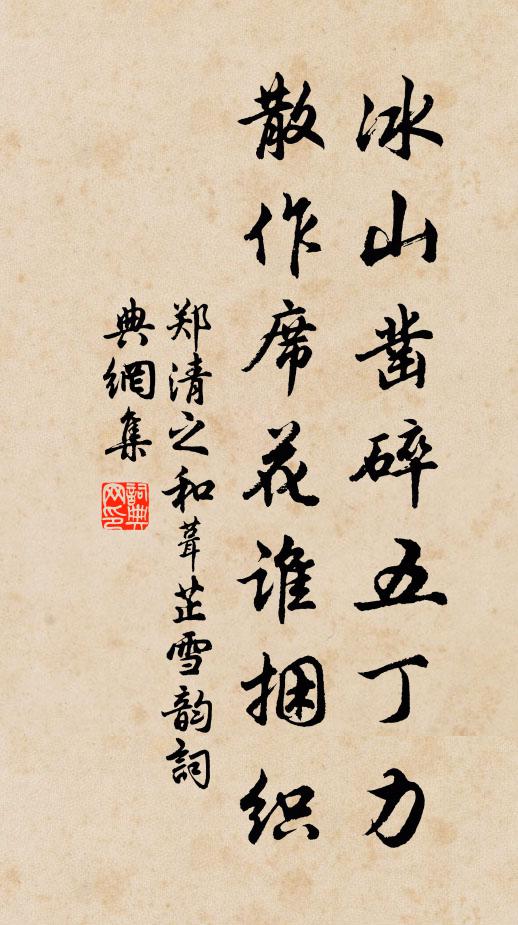 冰山凿碎五丁力
散作席花谁捆织
郑清之和葺芷雪韵詞
典網集
詞典
网印